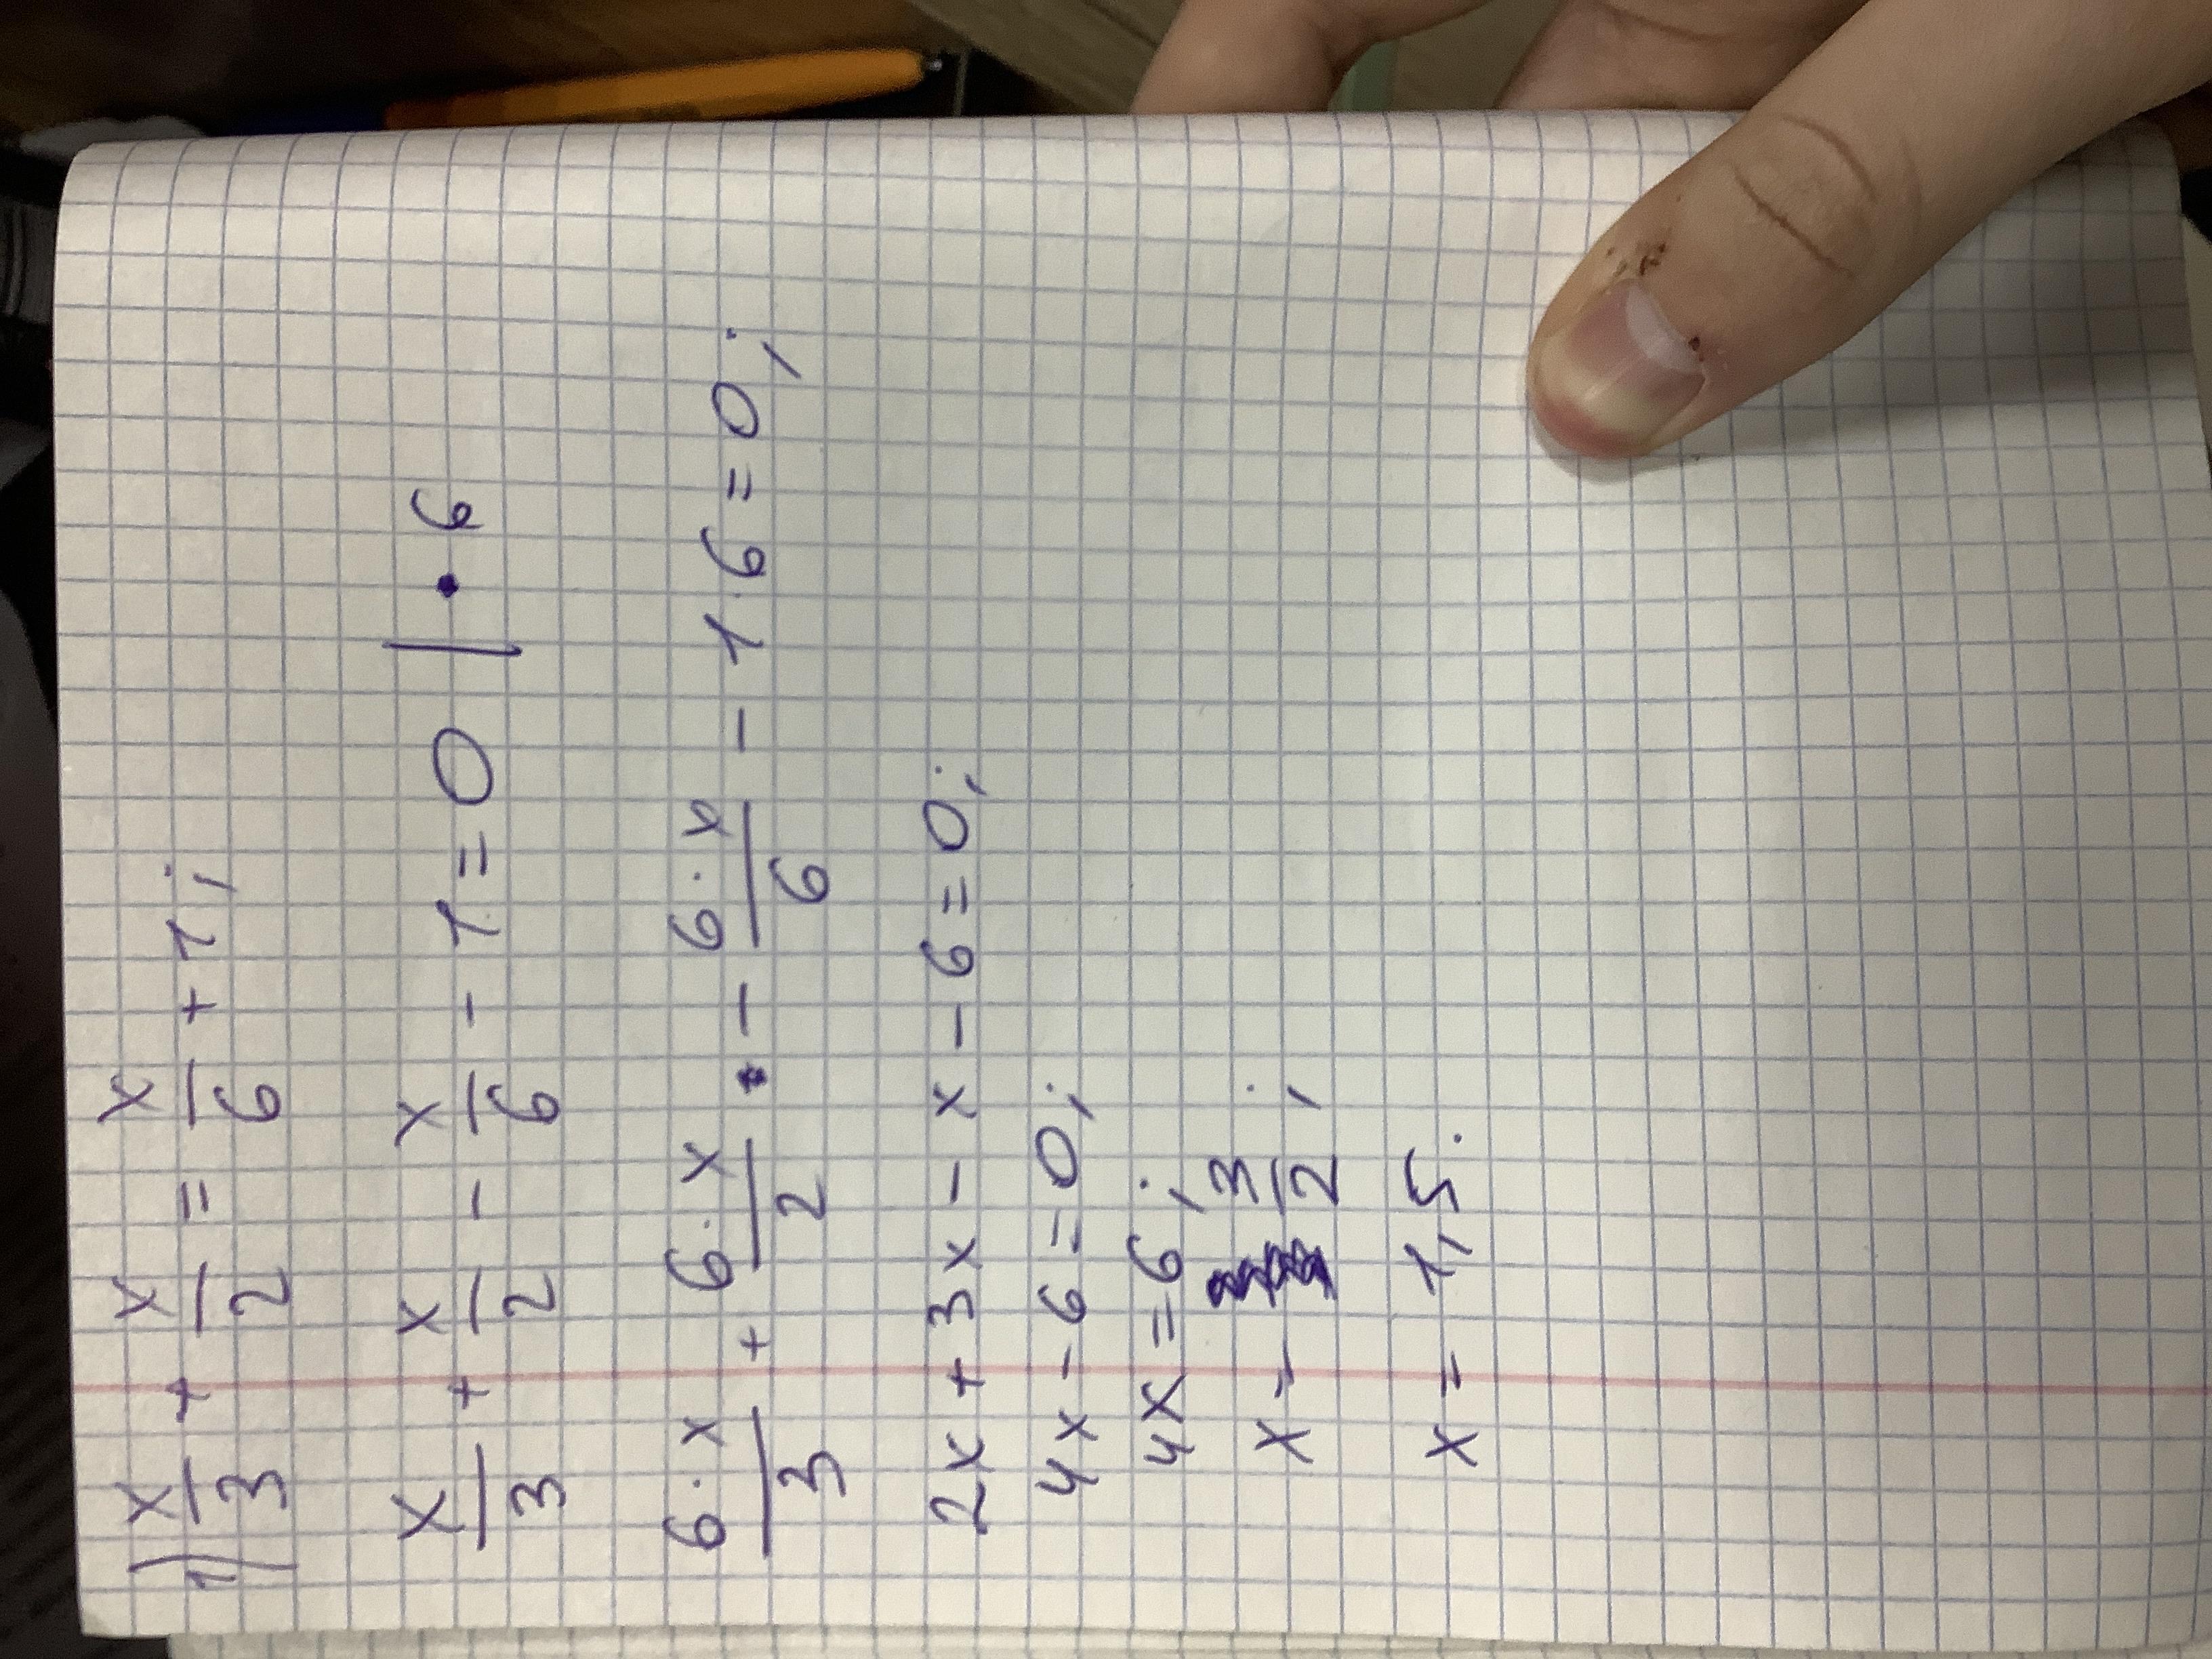 1) x/3 + x/2 = x/6 + 1;
x/3 + x/2 - x/6 - 1 = 0 | • 6
6·x/3 + 6·x/2 - 6·x/6 - 1·6 = 0;
2x + 3x - x - 6 = 0;
4x - 6 = 0;
4x = 6;
x = 3/2;
x = 1,5.